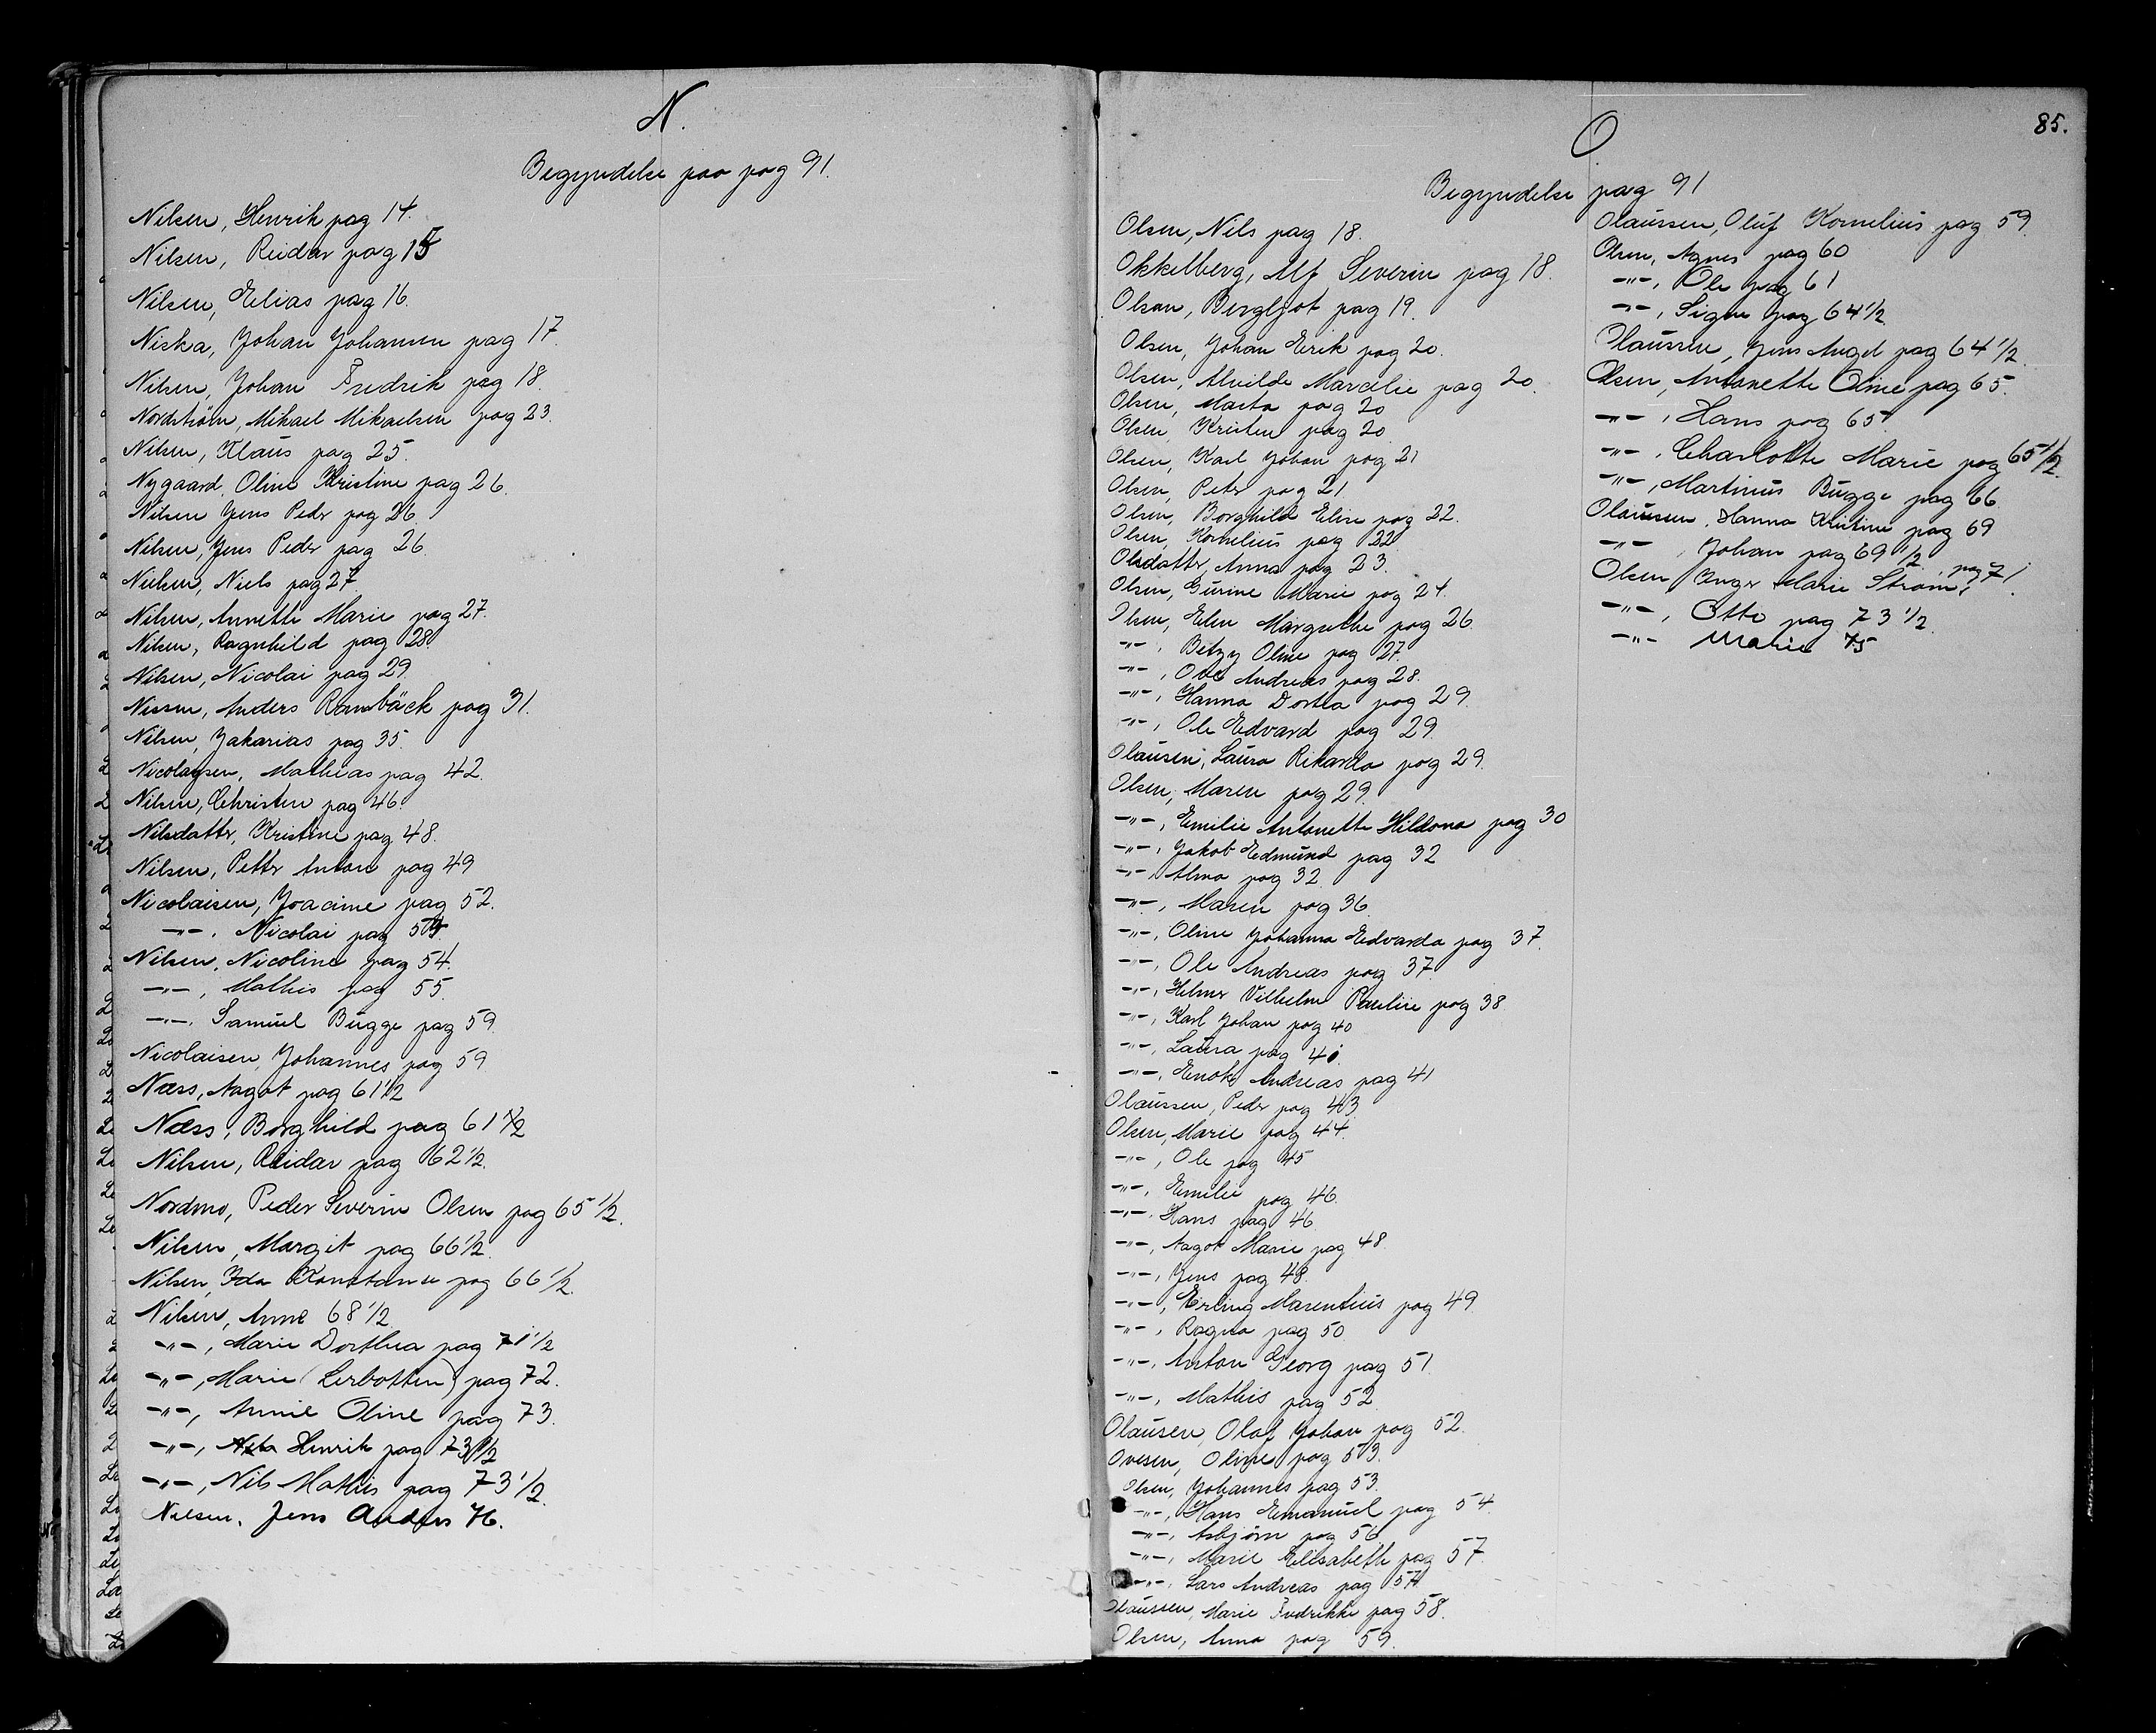 N.
Begyndelse paa pag 91.
Nilsen, Henrik pag 14.
Nilsen, Reidar pag 15
Nilsen, Elias pag 16.
Niska, Johan Johansen pag 17.
Nilsen, Johan Fredrik pag 18.
Nordstrøm, Mikael Mikaelsen pag 23.
Nilsen, Klaus pag 25.
Nygaard, Oline Kristine pag 26.
Nilsen Jens Peder pag 26.
Nilsen, Jens Peder pag 26.
Nielsen, Niels pag 27
Nilsen, Annette Marie pag 27.
Nilsen, Ragnhild pag 28.
Nilsen, Nicolai pag 29.
Nissen, Anders Rambäck pag 31.
Nilsen, Zakarias pag 35.
Nicolaysen, Mathias pag 42.
Nilsen, Christen pag 46.
Nilsdattr, Kristine pag 48.
Nilsen, Petter Anton pag 49
Nicolaisen, Joacime pag 52.
-"-, Nicolai pag
Nilsen, Nicoline pag 54.
-"-, Mathis pag 55.
-"-, Samuel Bugge pag 59.
Nicolaisen, Johannes pag 59
Næss, Aagot pag 61 1/2
Næss, Borghild pag 61 1/2
Nilsen, Reidar pag 62 1/2.
Nordmo, Peder Severin Olsen pag 65 1/2.
Nilsen, Margit pag 66 1/2.
Nilsen, Ida Konstanse pag 66 1/2.
Nilsen, Anne 68 1/2.
-"-, Marie Dorthea pag 71 1/2
-"-, Marie (Lerbotten) pag 72.
-"-, Annie Oline pag 73.
-"-, Henrik pag 73 1/2
-"-, Nils Mathis pag 73 1/2.
Nilsen, Jens Anders 76.
85.
O
Begyndelse pag 91
Olsen, Nils pag 18.
Okkelberg, Alf Severin pag 18.
Olsen, Bergljot pag 19.
Olsen, Johan Erik pag 20.
Olsen, Alvilde Marcelie pag 20.
Olsen, Marta pag 20
Olsen, Kristen pag 20
Olsen, Karl Johan pag 21
Olsen, Petr pag 21
Olsen, Borghild Elise pag 22.
Olsen, Kornelius pag 22
Olsdatter, Anna pag 23.
Olsen, Gurine Marie pag 24.
Olsen, Elen Margrethe pag 26
-"-, Betzy Oline pag 27.
-"-, Ole Andreas pag 28.
-"-, Hanna Dortea pag 29.
-"-, Ole Edvard pag 29.
Olausen, Laura Rikarda pag 29.
Olsen, Maren pag 29.
-"-, Emilie Antonette Hildona pag 30
-"-, Jakob Edmund pag 32
-"-, Alma pag 32.
-"-, Maren pag 36.
-"-, Oline Johanna Edvarda pag 37.
-"-, Ole Andreas pag 37
-"-, Helmer Vilhelm Pauline pag 38
-"-, Karl Johan pag 40
-"-, Laura pag
-"-, Enok Andreas pag 41
Olaussen, Peder pag 43.
Olsen, Marie pag 44.
-"-, Ole pag 45
-"-, Emilie pag 46.
-"-, Hans pag 46.
-"-, Aagot Marie pag 48
-"-, Jens pag 48.
-"-, Erling Marentius pag 49
-"-, Ragna pag 50.
-"-, Anton Georg pag 51.
-"-, Mathis pag 52.
Olausen, Olaf Johan pag 52.
Ovesen, Oline pag 53.
Olsen, Johannes pag 53.
-"-, Hans Emanuel pag 54.
-"-, Asbjørn pag 56
-"-, Marie Elisabeth pag 57.
-"-, Lars Andreas pag 57
Olaussen, Marie Fredrikke pag 58.
Olsen, Anna pag 59.
Olaussen, Oluf Kornelius pag 59.
Olsen, Agnes pag 60
-"-, Ole pag 61
-"-, Signe pag 64 1/2.
Olaussen, Jens Angel pag 64 1/2
Olsen, Antonette Oline pag 65.
-"-, Hans pag 65.
-"-, Charlotte Marie pag 65 1/2.
-"-, Martinus Bugge pag 66
Olausen, Hanna Kristine pag 69
-"-, Johan pag 69 1/2
Olsen Inger Marie Strøm, pag 71.
-"-, Otto pag 73 1/2.
-"- Marie 75